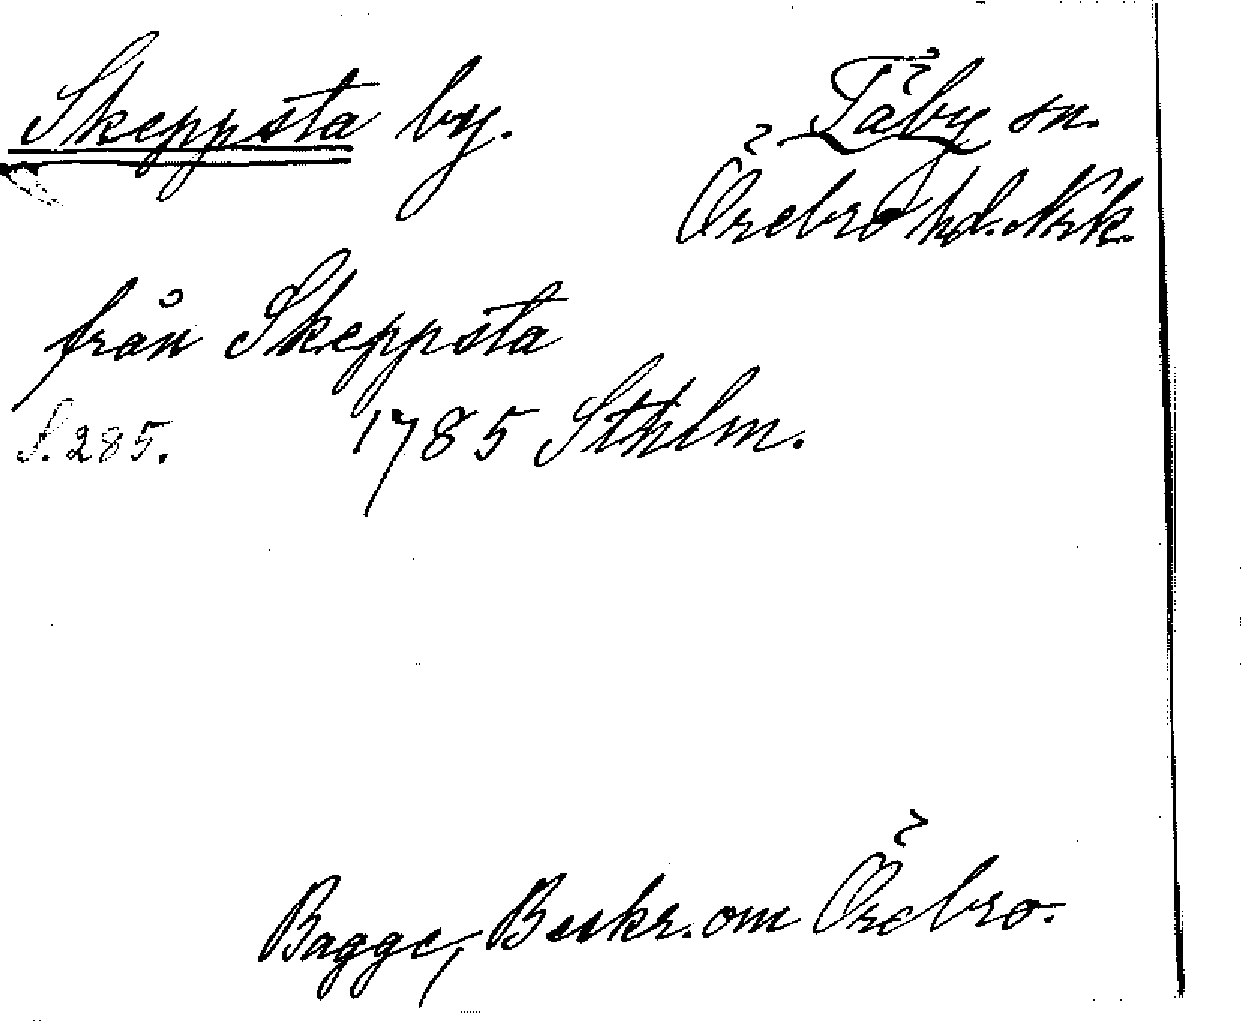 Skeppsta by.
Täby sn.
Örebro hd. Nrk.
från Skeppsta
S. 285. 1785 Sthlm.
Bagge, Beskr. om Örebro.